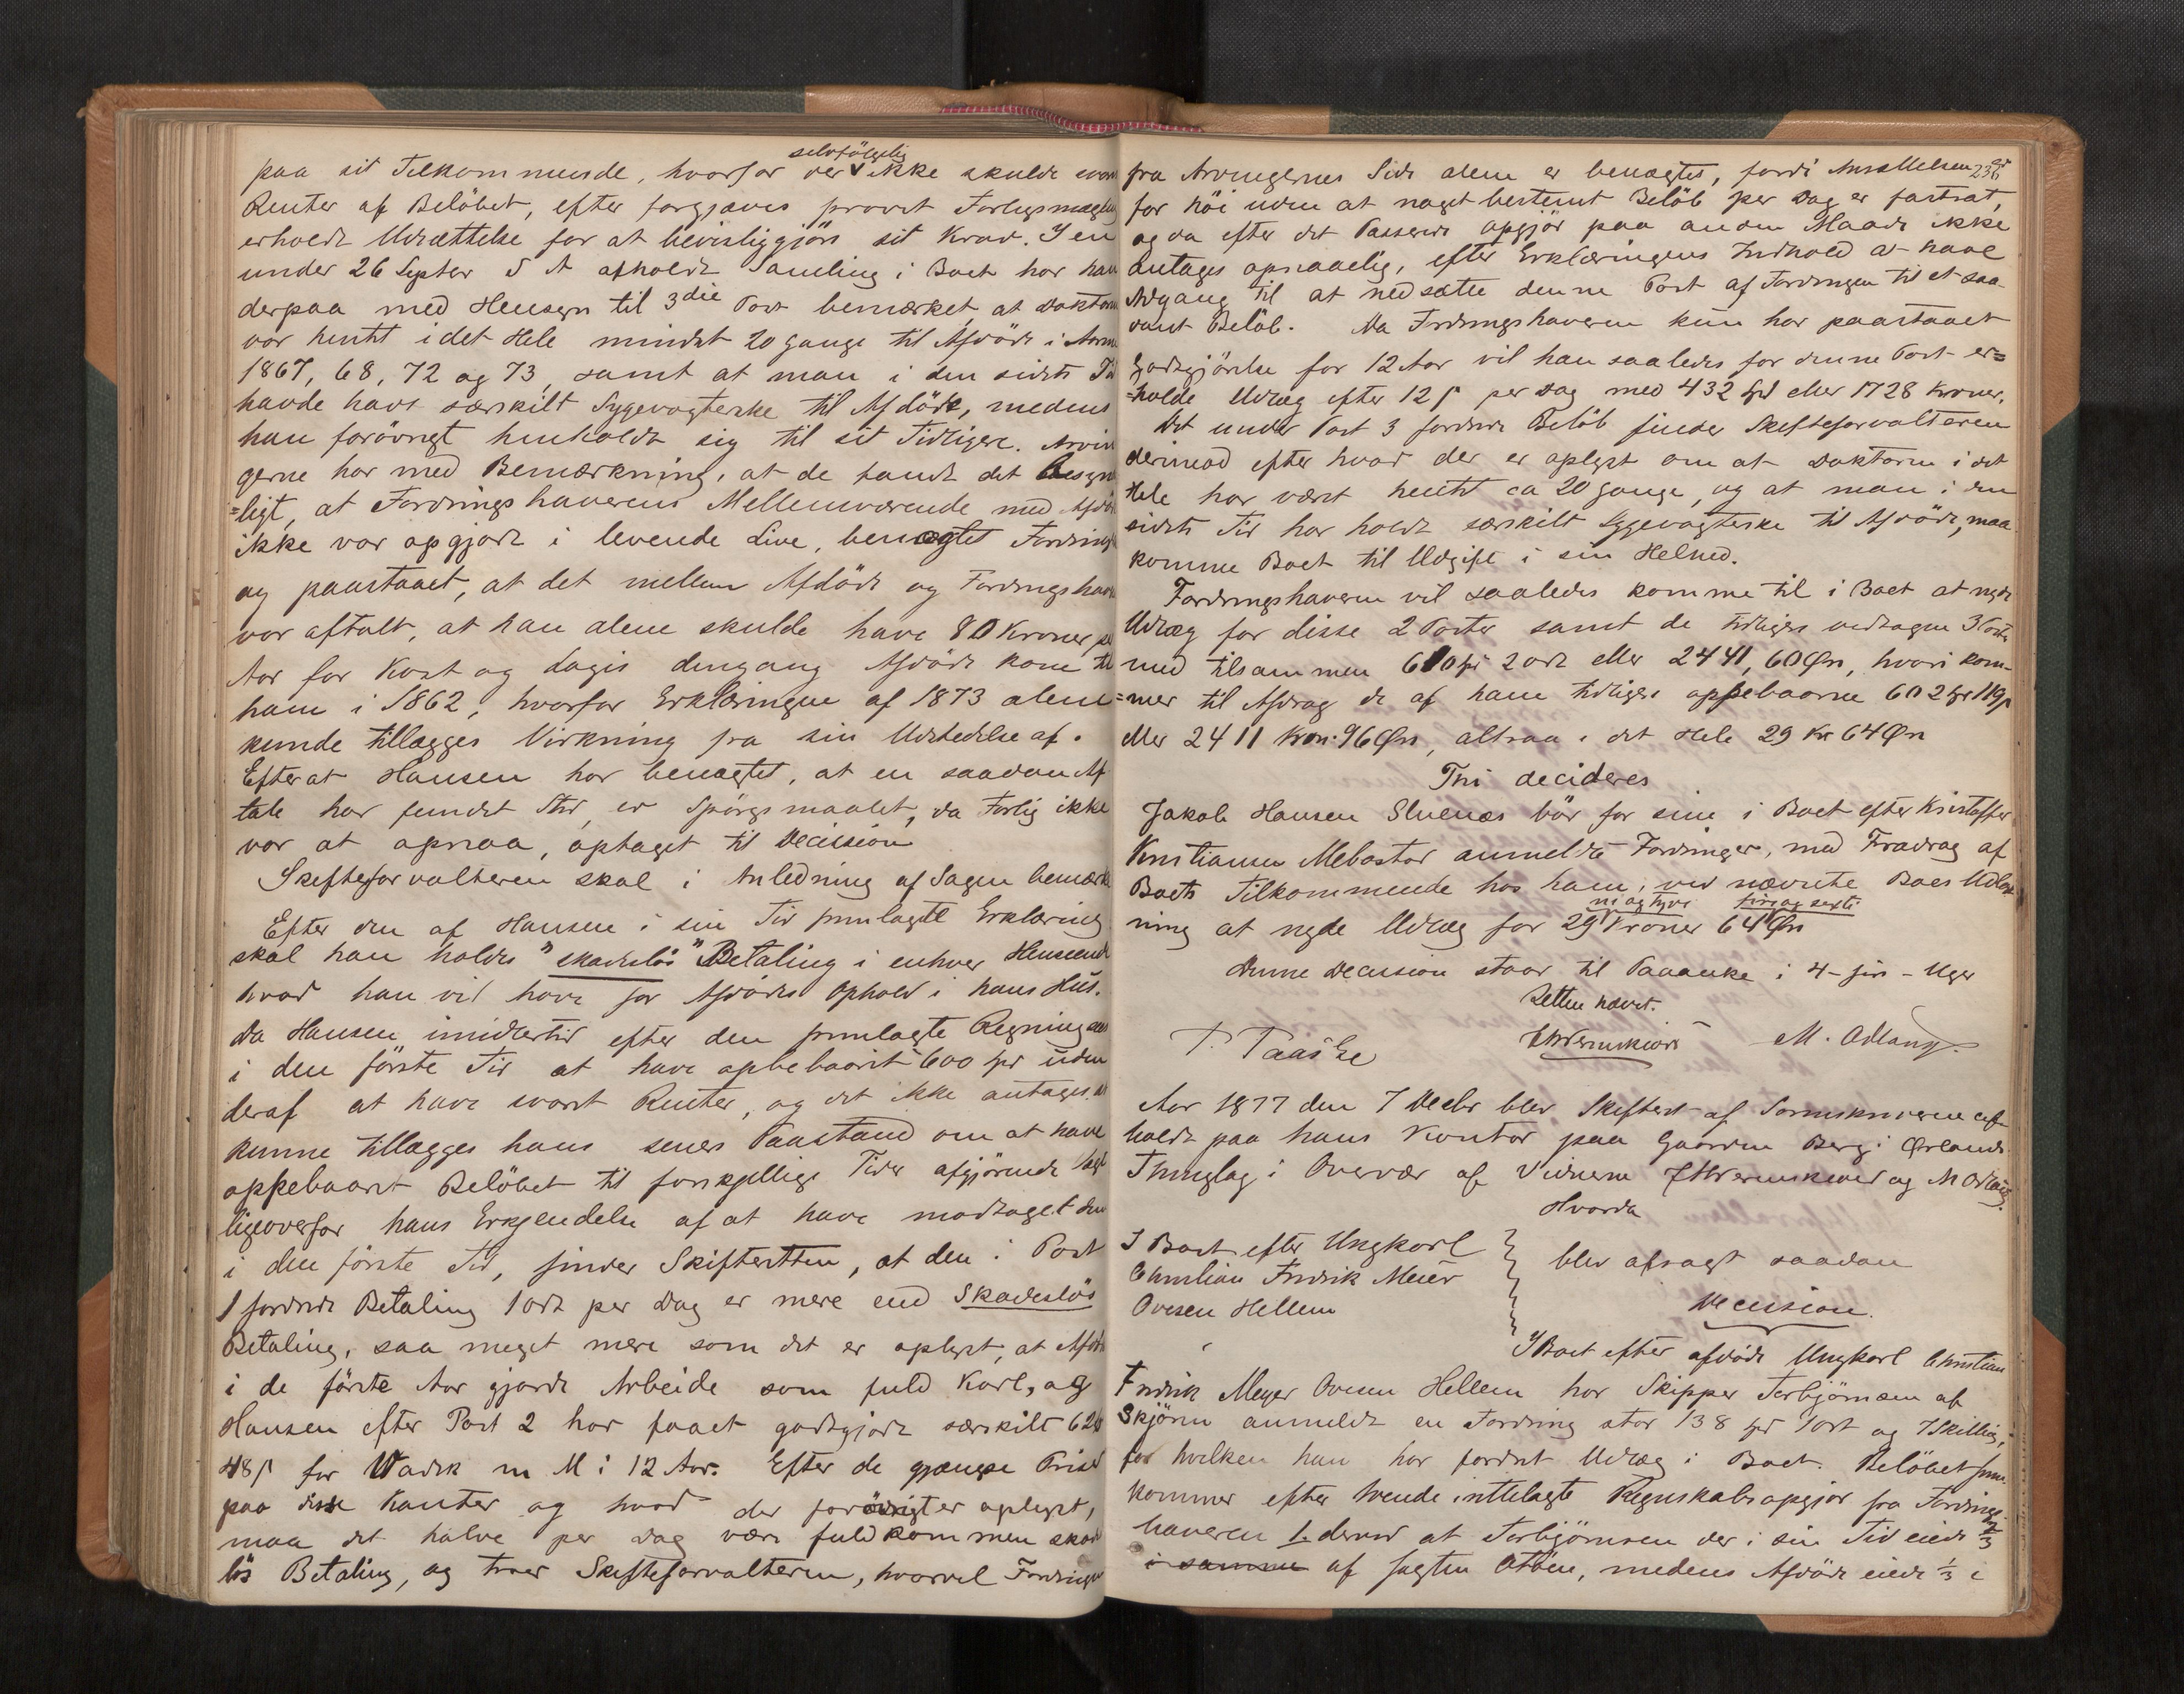 paa sit Tilkommende, hvorfor der selvfölgelig ikke skulde svares
Renter af Belöbet, efter forgjæves prøvet Forligsmægling
erholdt Udsættelse for at bevisliggjöre sit Krav. I en
under 26 Septbr d A afholdt Samling i Boet har han
derpaa med Hensyn til 3die Post bemærket at Doktoren
var hentet i det Hele mindst 20 gange til Afdöde i Aarene
1867, 68, 72 og 73, samt at man i den sidste Tid
havde havt særskilt Sygevogterske til Afdöde, medens
han forövrigt henholdt sig til sit Tidligere. Arvin
gerne har med Bemærkning, at de fandt det besyn
=ligt, at Fordringshaverens Mellemværende med Afdöde
ikke var opgjort i levende Live, benægtet Fordringen
og paastaaet, at det mellem Afdöde og Fordringshaver
var aftalt, at han alene skulde have 80 Kroner pr
Aar for Kost og Logis dengang Afdöde kom til
ham i 1862, hvorfor Erklæringen af 1873 alene
kunde tillægges Virkning fra sin Udstedelse af.
Efterat Hansen har benægtet, at en saadan Af
tale har fundet Sted, er Spörgsmaalet, da Forlig ikke
var at opnaa, optaget til Decission
Skifteforvalteren skal i Anledning af Sagen bemærke
Efter den af Hansen i sin Tid fremlagte Erklæring
skal han holdes "skadeslös" Betaling i enhver Henseende
hvad han vil have for Afdödes Ophold i hans Hus.
Da Hansen imidlertid efter den fremlagte Regning
i den förste Tid at have opbebaaret 600 Spd uden
deraf at have svaret Renter, og det ikke antages at
kunne tillægges hans senere Paastand om at have
oppebaaret Belöbet til forskjellige Tider afgjörende Vægt
ligeoverfor hans Erkjendelse af at have modtaget den
i den förste Tid, finder Skifteretten, at den i Post
1 fordrede Betaling 1 ort per Dag er mere end Skadeslös
Betaling, saa meget mere som det er oplyst, at Afdöde
i de förste Aar gjorde Arbeide som fuld Karl, og
Hansen efter Post 2 har faaet godtgjort særskilt 62
48 ß for Vadsk m M i 12 Aar. Efter de gjængse Priser
paa disse Kanter og hvad der forövrigt er oplyst,
maa det halve per Dag være fuldkommen skades
lös Betaling, og troer Skifteforvalteren, hvorvel Fordringen
236
fra Arvingernes Side alene er benægtet, fordi Ansættelsen er
for höi uden at noget bestemt Belöb per Dag er fastsat,
og da efter det Passerede opgjör paa anden Maade ikke
antages opnaaelig, efter Erklæringens Indhold at have
Adgang til at nedsætte denne Post af Fordringen til et saa
dant Belöb. Da Fordringshaveren kun har paastaaet
Godtgjörelse for 12 Aar vil han saaledes for denne Post er=
=holde Udlæg efter 12 ß per Dag med 432 Spd eller 1728 Kroner.
Det under Post 3 fordrede Belöb finder Skifteforvalteren
derimod efter hvad der er oplyst om at Doktoren i det
Hele har været hentet ca 20 gange, og at man i den
sidste Tid har holdt særskilt Sygevogterske til Afdöde, maa
komme Boet til Udgift i sin Helhed.
Fordringshaveren vil saaledes komme til i Boet at nyde
Udlæg for disse 2 Poster samt de tidligere vedtagne 3 Poster
med tilsammen 610 Spd 2 ort eller 2441, 60 Øre, hvori kom-
=mer til Afdrag de af ham tidligere oppebaarne 602 Spd 119 ß
eller 2411 Kron: 96 Øre, altsaa i det Hele 29 Kr 64 Øre
Thi decideres
Jakob Hansen Stuenæs bör for sine i Boet efter Kristoffer
Kristiansen Mebostad anmeldte Fordringer, med Fradrag af
Boets Tilkommende hos ham, ved nævnte Boes Udlod
ning at nyde Udlæg for 29 ni og tyve Kroner 64 fire og sexti Øre
Denne Decission staar til Paaanke i 4 - fire - Uger
Retten hævet.
T. Paaske M. Odlaug.
Aar 1877 den 7 Decbr blev Skifteret af Sorenskriveren af
holdt paa hans Kontor paa Gaarden Berg i Ørlands
Thinglag i Overvær af Vidnerne og M Odlaug.
Hvorda
I Boet efter Ungkarl
Christian Fredrik Meier
Ovesen Hellem
blev afsagt saadan
Decission.
I Boet efter afdöde Ungkarl Christian
Fredrik Meyer Ovesen Hellem har Skipper Torbjörnsen af
Skjörn anmeldt en Fordring stor 138 Spd 1 ort og 7 Skilling,
for hvilken han har fordret Udlæg i Boet. Belöbet frem
kommer efter tvende inttelagte Regnskabsopgjör fra Fordrings
haveren 1. derved at Torbjörnsen der i sin Tid eiede 2/3
i samme af Jagten Otten, medens Afdöde eiede 1/3 i